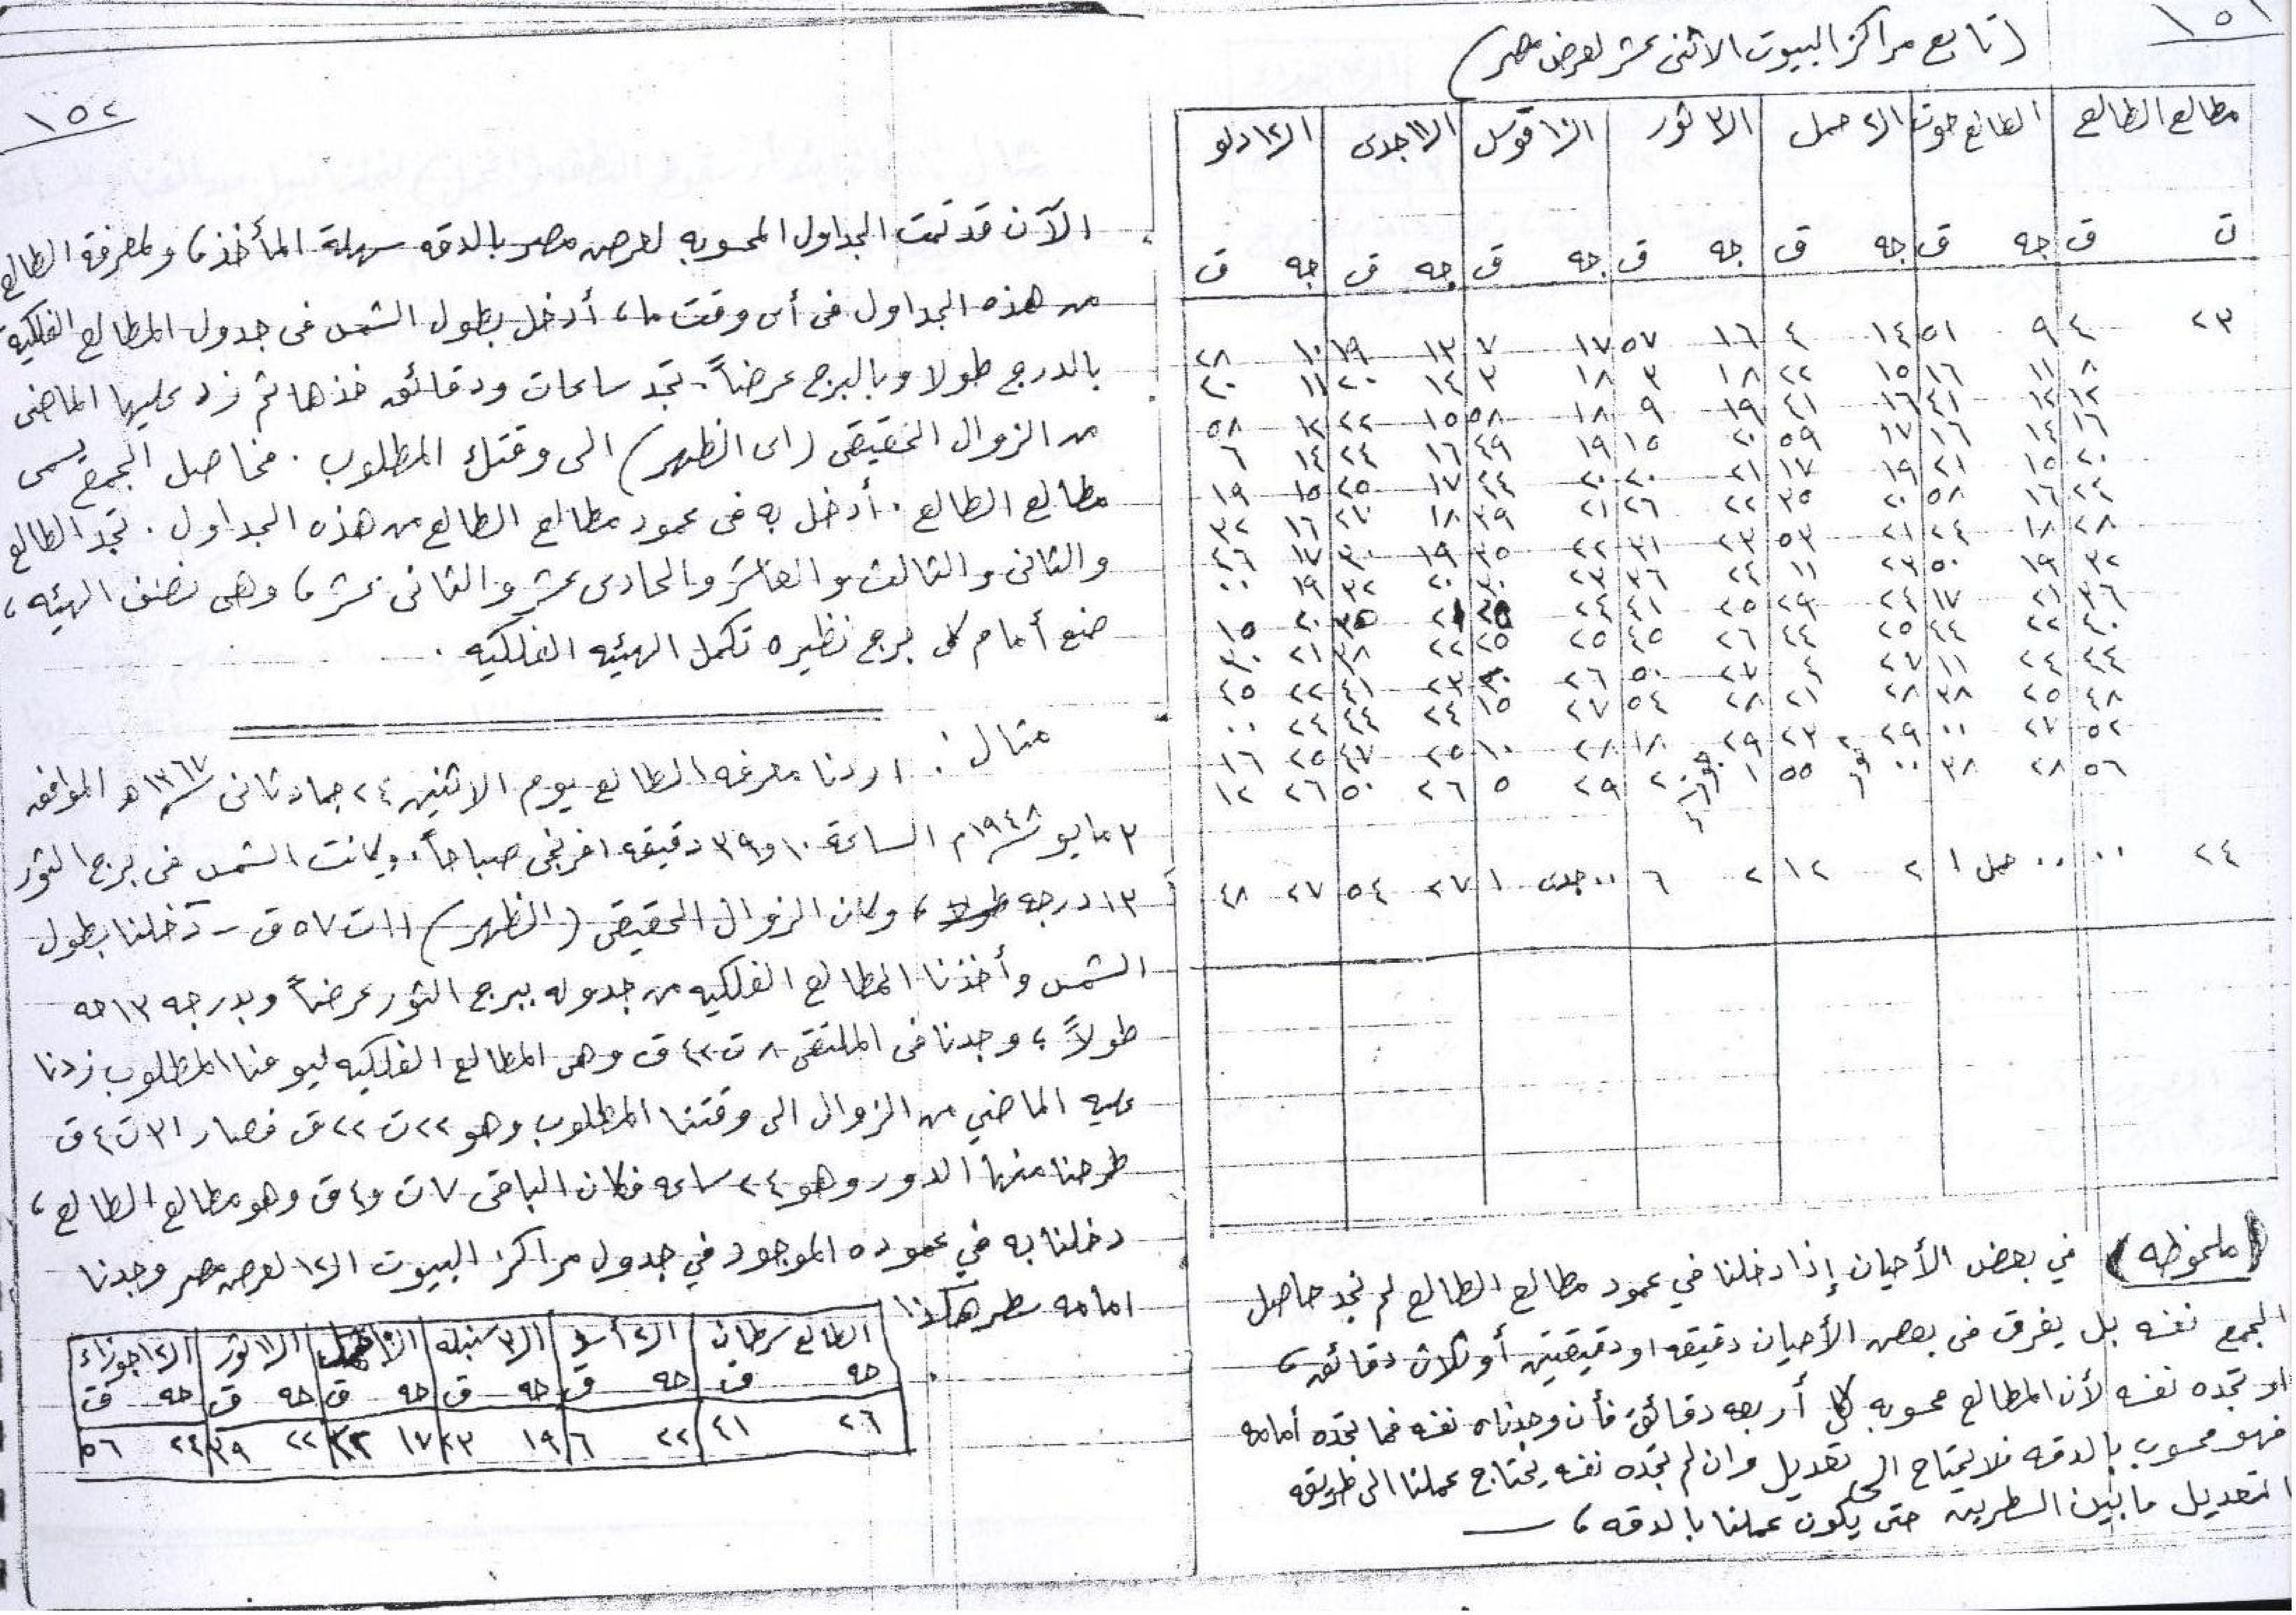 ١٥١
(تابع مراكز البيوت الاثنى عشر لعرض مصر)
مطالع الطالع | الطالع حوت | الـ٢ حمل | الـ٣ ثور | الـ١٠ قوس | الـ١١ جدى | الـ١٢ دلو
ت ق | جه ق | جه ق | جه ق | جه ق | جه ق | جه ق
٢٣ ٤ | ٩ ٥١ | ١٤ ٤ | ١٦ ٥٧ | ١٧ ٧ | ١٣ ١٩ | ١٠ ٢٨
٨ | ١١ ١٦ | ١٥ ٢٢ | ١٨ ٣ | ١٨ ٣ | ١٤ ٢٠ | ١١ ٤٠
١٢ | ١٢ ٤١ | ١٦ ٤١ | ١٩ ٩ | ١٨ ٥٨ | ١٥ ٢٢ | ١٢ ٥٨
١٦ | ١٤ ١٦ | ١٧ ٥٩ | ٢٠ ١٥ | ١٩ ٤٩ | ١٦ ٢٤ | ١٤ ٦
٢٠ | ١٥ ٢١ | ١٩ ١٧ | ٢١ ٢٠ | ٢٠ ٤٤ | ١٧ ٢٥ | ١٥ ١٩
٢٤ | ١٦ ٥٨ | ٢٠ ٣٥ | ٢٢ ٢٦ | ٢١ ٣٩ | ١٨ ٢٧ | ١٦ ٣٢
٢٨ | ١٨ ٢٤ | ٢١ ٥٣ | ٢٣ ٣١ | ٢٢ ٣٥ | ١٩ ٣٠ | ١٧ ٤٦
٣٢ | ١٩ ٥٠ | ٢٣ ١١ | ٢٤ ٣٦ | ٢٣ ٣٠ | ٢٠ ٣٢ | ١٩ ٠٠
٣٦ | ٢١ ١٧ | ٢٤ ٢٩ | ٢٥ ٤١ | ٢٤ ٢٥ | ٢١ ٣٥ | ٢٠ ١٥
٤٠ | ٢٢ ٤٤ | ٢٥ ٤٤ | ٢٦ ٤٥ | ٢٥ ٢٥ | ٢٢ ٣٨ | ٢١ ٣٠
٤٤ | ٢٤ ١١ | ٢٧ ٤ | ٢٧ ٥٠ | ٢٦ ٢٠ | ٢٣ ٤١ | ٢٢ ٤٥
٤٨ | ٢٥ ٣٨ | ٢٨ ٢١ | ٢٨ ٥٤ | ٢٧ ١٥ | ٢٤ ٤٤ | ٢٤ ٠٠
٥٢ | ٢٧ ٠٠ | ٢٩ ٢٣ | ٢٩ ١٨ | ٢٨ ١٠ | ٢٥ ٤٧ | ٢٥ ١٦
٥٦ | ٢٨ ٣٨ | ٠٠ ٥٥ | ١ ٢ | ٢٩ ٥ | ٢٦ ٥٠ | ٢٦ ١٢
٢٤ ٠٠ | ٠٠ حمل ١ | ٢ ١٢ | ٢ ٦ | ٠٠ جدى ١ | ٢٧ ٥٤ | ٢٧ ٤٨
(ملحوظه) في بعض الأحيان إذا دخلنا في عمود مطالع الطالع لم نجد حاصل
الجمع نفسه بل يفرق فى بعض الأحيان دقيقه او دقيقتين أو ثلاث دقائق،
او تجده نفسه لأن المطالع محسوبه كل أربعه دقائق فأن وجدناه نفسه فما تجده أمامه
فهو محسوب بالدقه فلا تحتاج الى تعديل وان لم تجده نفسه يحتاج عملنا الى طريقه
التعديل ما بين السطرين حتى يكون عملنا بالدقه،
١٥٢
الآن قد تمت الجداول المحسوبه لعرض مصر بالدقه سهلة المأخذ، ولمعرفة الطالع
من هذه الجداول فى أى وقت ما، أدخل بطول الشمس فى جدول المطالع الفلكية
بالدرج طولا وبالبرج عرضاً. تجد ساعات ودقائق خذها ثم زد عليها الماضى
من الزوال الحقيقى (اى الظهر) الى وقتك المطلوب. فحاصل الجمع يسمى
مطالع الطالع. أدخل به فى عمود مطالع الطالع من هذه الجداول. تجد الطالع
والثانى والثالث والعاشر والحادى عشر والثانى عشر، وهى نصف الهيئه،
ضع أمام كل برج نظيره تكمل الهيئه الفلكيه.
مثال: اردنا معرفة الطالع يوم الاثنين ٢٤ جماد ثانى ١٣٦٧ هـ الموافق
٣ مايو ١٩٤٨م الساعة ١٠ و ٣٩ دقيقه افرنجى صباحاً. وكانت الشمس فى برج الثور
١٣ درجه طولا، وكان الزوال الحقيقى (الظهر) ١١ ت ٥٧ ق - دخلنا بطول
الشمس وأخذنا المطالع الفلكيه من جدوله ببرج الثور عرضاً وبدرجه ١٣ حه
طولاً؛ وجدنا فى الملتقى ٨ ت ٤٢ ق وهى المطالع الفلكيه ليومنا المطلوب زدنا
عليه الماضي من الزوال الى وقتنا المطلوب وهو ٢٢ ت ٢٢ ق فصار ٣١ ت ٤ ق
طرحنا منها الدور وهو ٢٤ ساعه فكان الباقى ٧ ت و ٤ ق وهو مطالع الطالع،
دخلنا به في عموده الموجود في جدول مراكز البيوت الـ١٢ لعرض مصر وجدنا
امامه سطر هكذا
الطالع سرطان | الـ٢ أسد | الـ٣ سنبله | الـ١٠ حمل | الـ١١ ثور | الـ١٢ جوزاء
حه ق | حه ق | حه ق | حه ق | حه ق | حه ق
٢٦ ٤١ | ٢٢ ٦ | ١٩ ٢٣ | ١٧ ٢٣ | ٢٢ ٣٩ | ٢٤ ٥٦